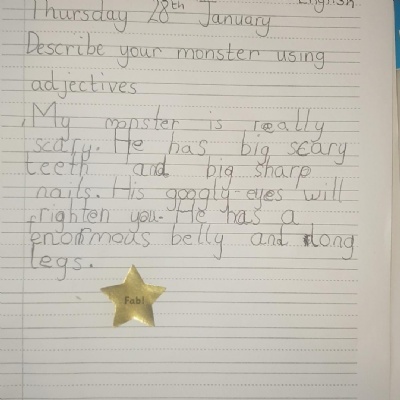 English
Thursday 28th January
Describe your monster using
adjectives
My monster is really
scary. He has big scary
teeth and big sharp
nails. His googly-eyes will
frighten you. He has a
enormous belly and long
legs.
Fab!